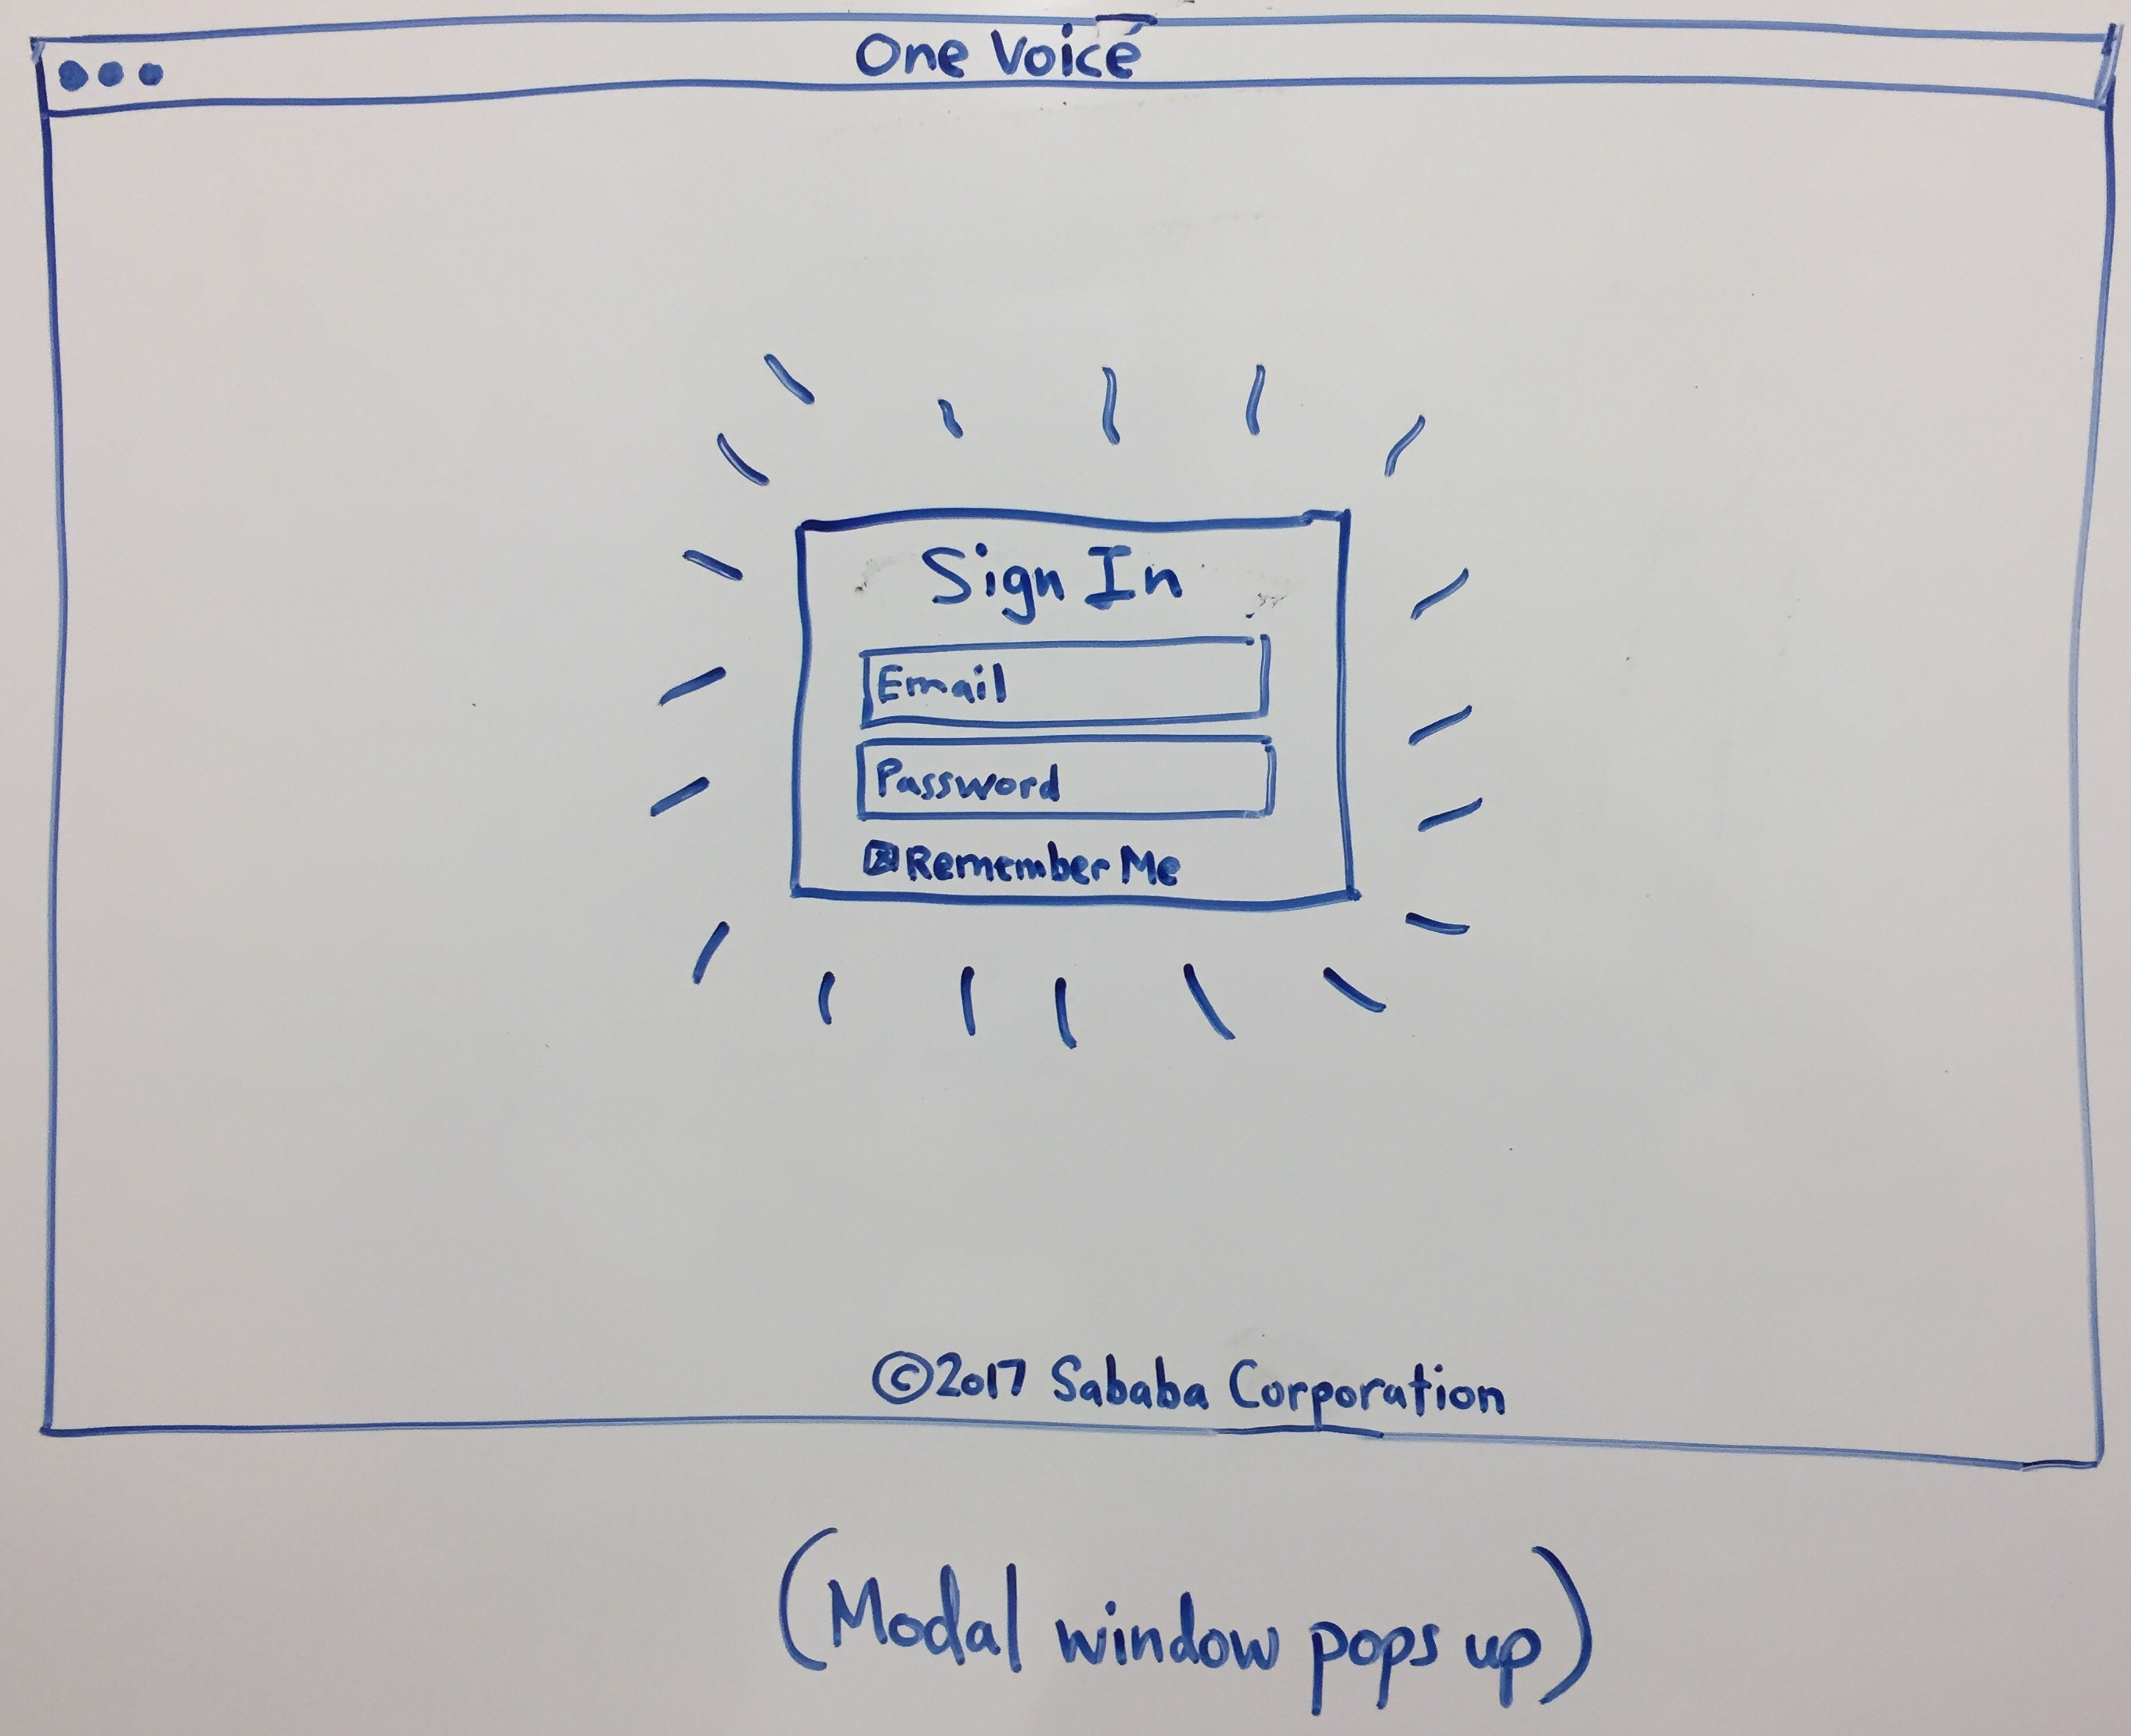 One Voice
Sign In
Email
Password
Remember Me
©2017 Sababa Corporation
(Modal window pops up)